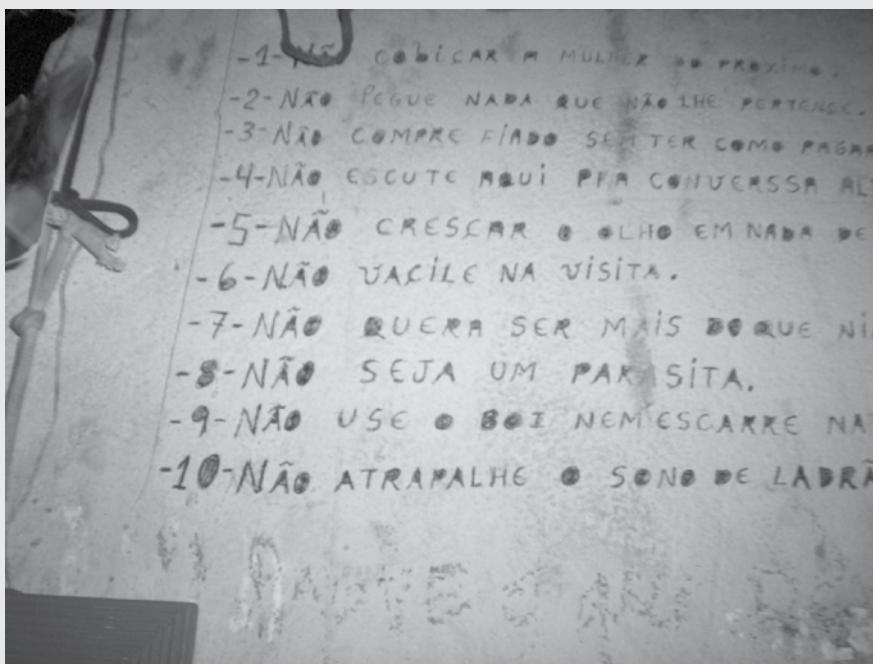 -1-NÃO COBiCAR A MULHER DO PROXIMO.
-2-NÃO PEGUE NADA QUE NÃO LHE PERTENCE.
-3-NÃO COMPRE FiADO SEM TER COMO PAGAR
-4-NÃO ESCUTE AQUi PRA CONVERSSA AL
-5-NÃO CRESCAR O OLHO EM NADA DE
-6-NÃO VACiLE NA ViSiTA.
-7-NÃO QUERA SER MAiS DO QUE Ni
-8-NÃO SEJA UM PARASiTA.
-9-NÃO USE O BOI NEM ESCARRE NA
-10-NÃO ATRAPALHE O SONO DE LADRÃ